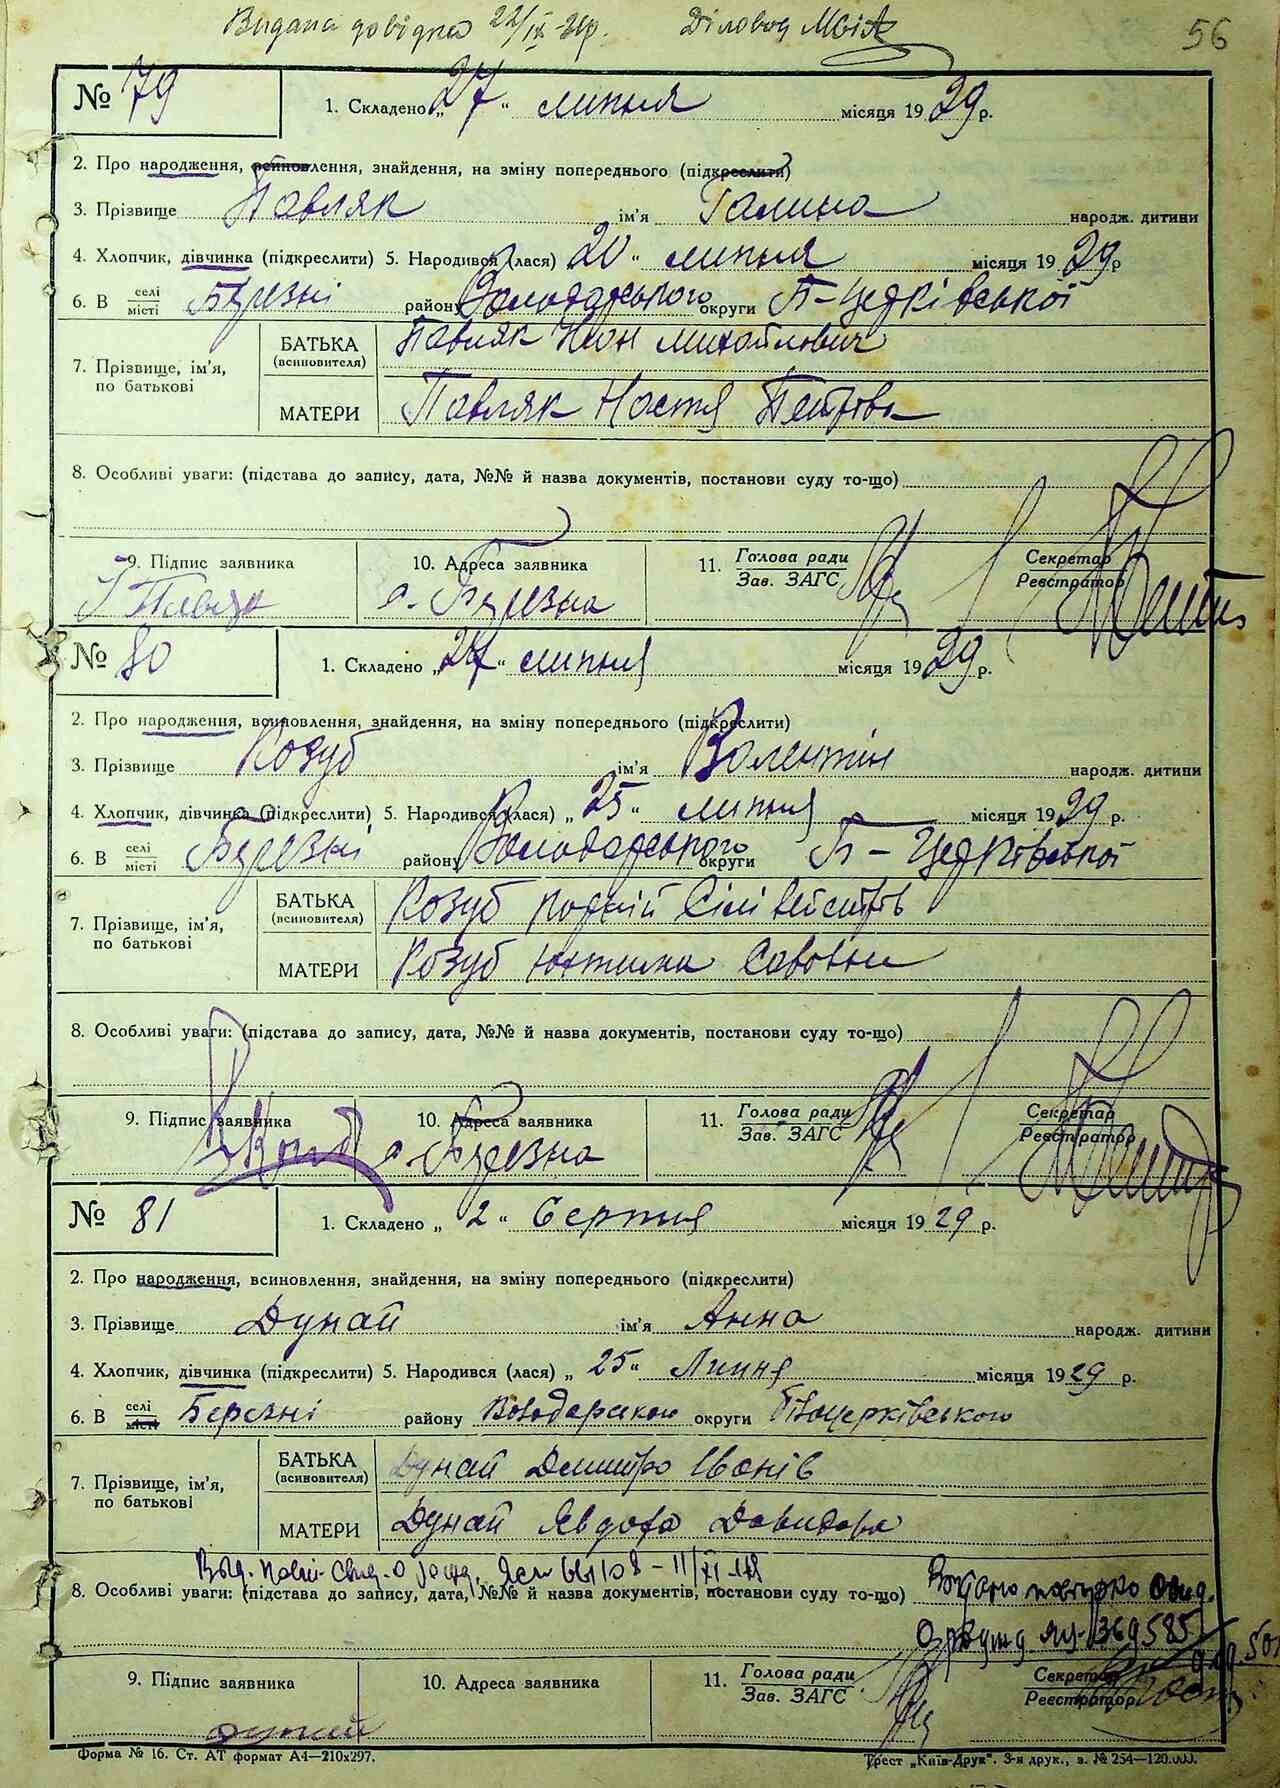 Видана довідка 22/IX-29р. Діловод
56
№ 79 1. Складено „27“ липня місяця 1929 р.
2. Про народження, всиновлення, знайдення, на зміну попереднього (підкреслити)
3. Прізвище Павляк ім'я Галина народж. дитини
4. Хлопчик, дівчинка (підкреслити) 5. Народився (лася) 20 “ липня місяця 1929 р
6. В селі місті Березні району Володарського округи Б-Церківської
7. Прізвище, ім'я, по батькові
БАТЬКА (всиновителя) Павляк Іван Михайлович
МАТЕРИ Павляк Настя Петрівн
8. Особливі уваги: (підстава до запису, дата, №№ й назва документів, постанови суду то-що)
9. Підпис заявника 10. Адреса заявника 11. Голова ради Зав. ЗАГС Секретар Реєстратор
с. Березна
№ 80 1. Складено „27“ липня місяця 1929 р.
2. Про народження, всиновлення, знайдення, на зміну попереднього (підкреслити)
3. Прізвище Козуб ім'я Валентін народж. дитини
4. Хлопчик, дівчинка (підкреслити) 5. Народився (лася) „25“ липня місяця 1929 р.
6. В селі місті Березні району Володарського округи Б-Церківської
7. Прізвище, ім'я, по батькові
БАТЬКА (всиновителя) Козуб
МАТЕРИ Козуб Савовна
8. Особливі уваги: (підстава до запису, дата, №№ й назва документів, постанови суду то-що)
9. Підпис заявника 10. Адреса заявника 11. Голова ради Зав. ЗАГС Секретар Реєстратор
с. Березна
№ 81 1. Складено „2“ Серпня місяця 1929 р.
2. Про народження, всиновлення, знайдення, на зміну попереднього (підкреслити)
3. Прізвище Дунай ім'я Анна народж. дитини
4. Хлопчик, дівчинка (підкреслити) 5. Народився (лася) „25“ Липня місяця 1929 р.
6. В селі місті Березні району Володарсько округи Білоцерківського
7. Прізвище, ім'я, по батькові
БАТЬКА (всиновителя) Дунай Дмитро Іванів
МАТЕРИ Дунай Явдоха Давидова
8. Особливі уваги: (підстава до запису, дата, №№ й назва документів, постанови суду то-що)
369585
9. Підпис заявника 10. Адреса заявника 11. Голова ради Зав. ЗАГС Секретар Реєстратор
Дунай
Форма № 16. Ст. АТ формат А4—210х297. Трест „Київ-Друк“. 3-я друк., з. № 254—120.000.